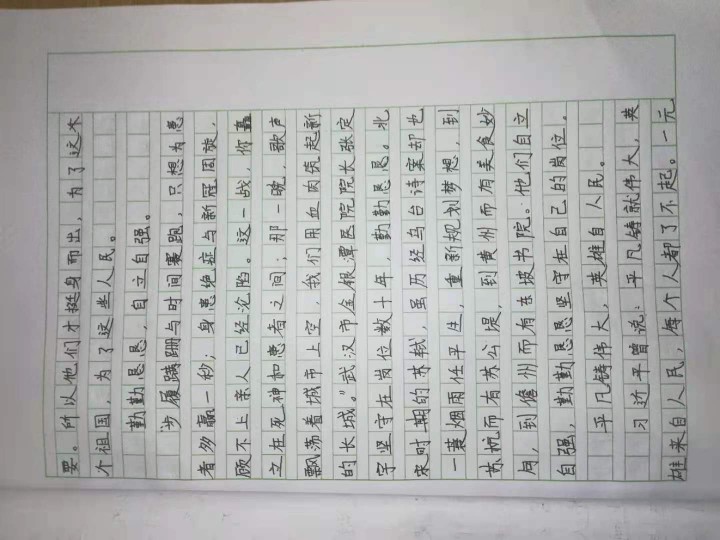 要。所以他们才挺身而出，为了这个
个祖国，为了这些人民。
勤勤恳恳，自立自强。
“步履蹒跚与时间赛跑，只想为患
者多赢一秒；身患绝症与新冠周旋，
顾不上亲人已经沦陷。这一战，你矗
立在死神和患者之间；那一晚，歌声
飘荡着城市上空，我们用血肉筑起新
的长城。”武汉市金银潭医院院长张定
宇坚守在岗位数十年，勤勤恳恳。北
宋时期的苏轼，虽历经乌台诗案却也
一蓑烟雨任平生，重新规划梦想，到
苏杭而有苏公堤，到黄州而有美食妙
用，到儋州而有东坡书院。他们自立
自强，勤勤恳恳坚守在自己的岗位。
平凡铸伟大，英雄自人民。
习近平曾说：平凡铸就伟大，英
雄来自人民，每个人都了不起。一元